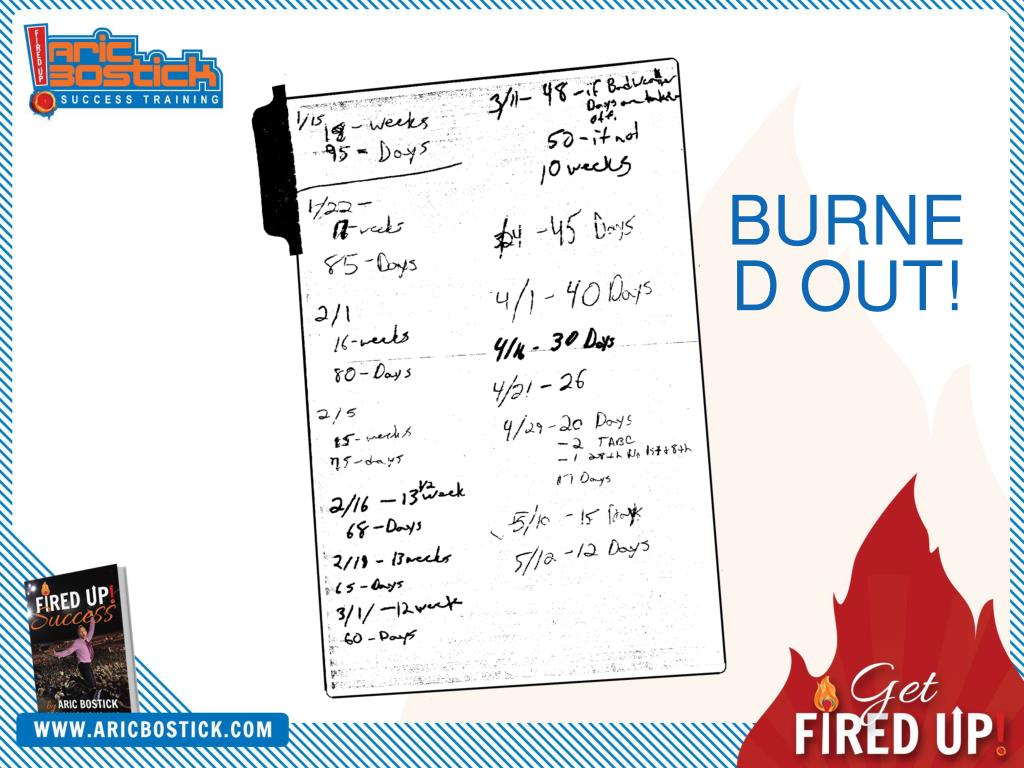 FIRED UP
ARIC
BOSTICK
SUCCESS TRAINING
1/15
18 - weeks
95 - Days
1/22 -
17 - weeks
85 - Days
2/1
16 - weeks
80 - Days
2/5
15 - weeks
75 - days
2/16 - 13 1/2 week
68 - Days
2/19 - 13 weeks
65 - Days
3/1/ - 12 week
60 - Days
3/11 - 48 - if Bad Weather
Days are taken
off.
50 - if not
10 weeks
- 45 Days
4/1 - 40 Days
4/16 - 30 Days
4/21 - 26
4/29 - 20 Days
- 2 TABC
- 1 28th No 1st + 8th
17 Days
5/10 - 15 Days
5/12 - 12 Days
BURNE
D OUT!
FIRED UP!
Success
by ARIC BOSTICK
WWW.ARICBOSTICK.COM
Get
FIRED UP!